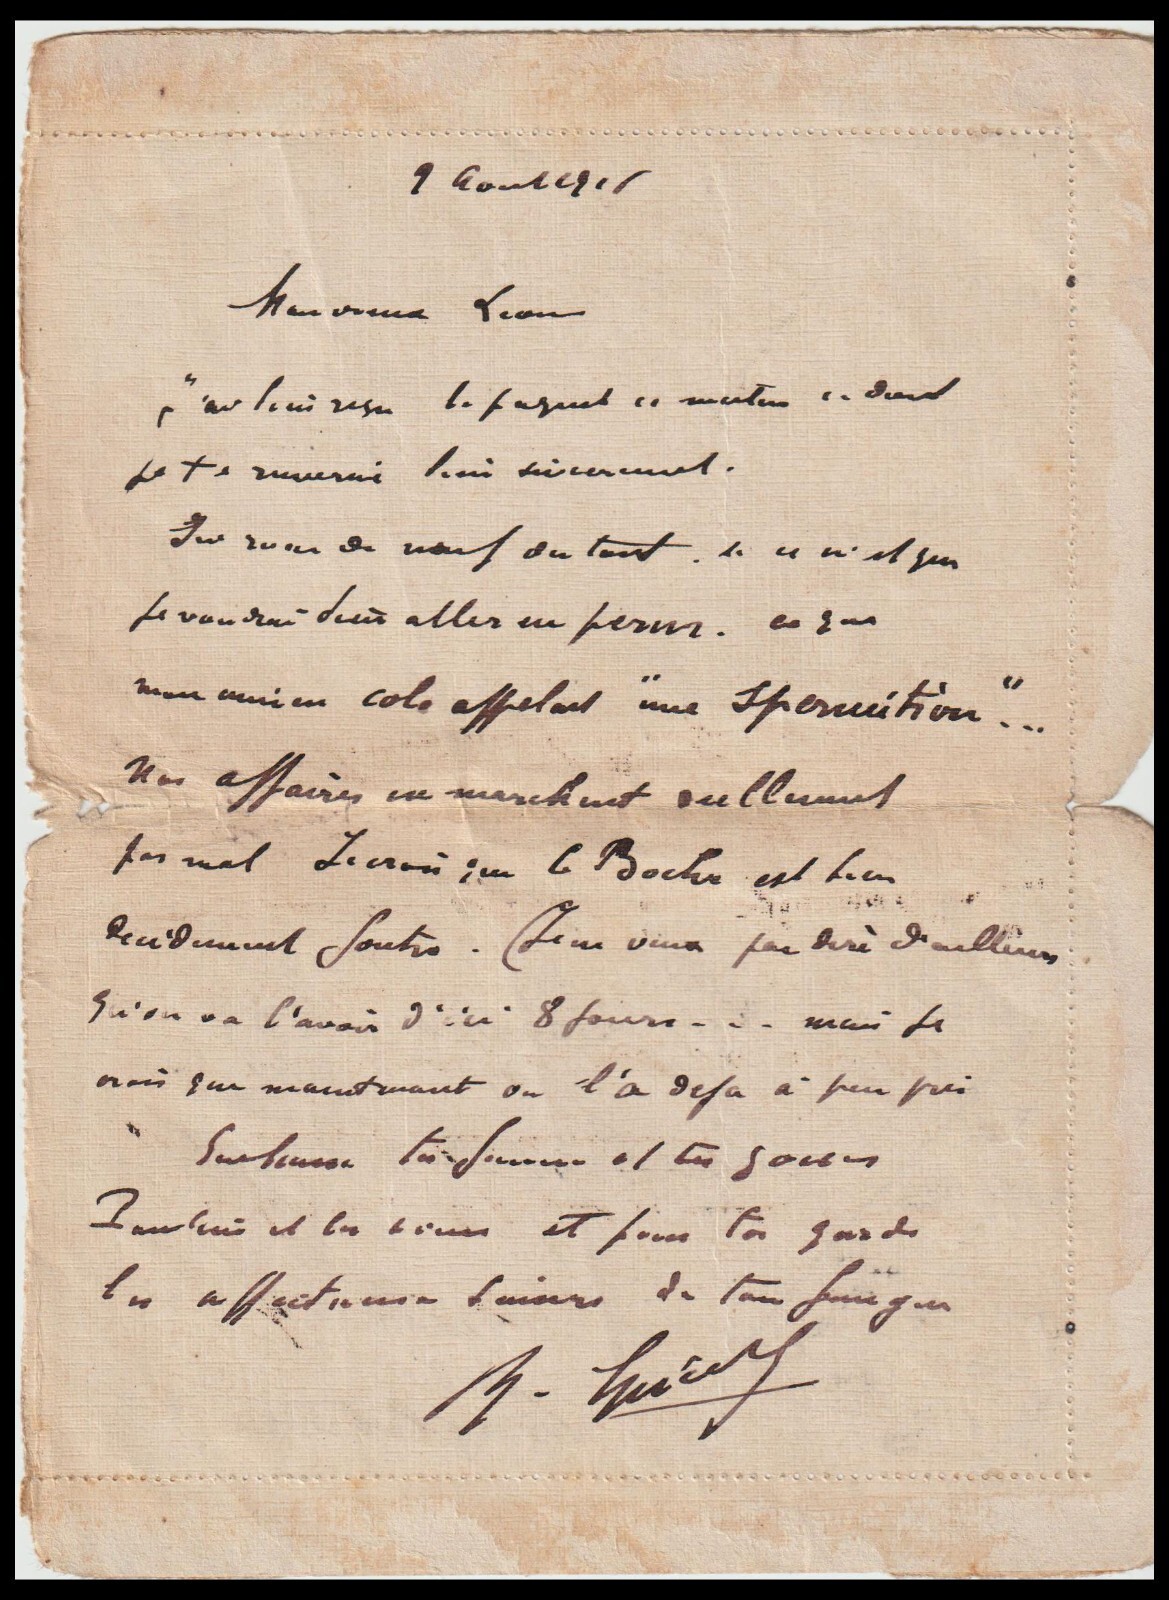 9 Aout 191
Mon vieux Leon
J'ai bien reçu le paquet ce matin ce dont
je te remercie bien sincerement.
Rien de neuf du tout. si ce n'est que
je voudrai bien aller en perme. ce que
mon ancien colo appelait "une spermition"...
Nos affaires ne marchent reellement
pas mal Je crois que le Boche est bien
decidement foutre. (Je ne veux pas dire d'ailleurs
qu'on va l'avoir d'ici 8 jours... mais je
crois que maintenant on l'a deja à peu près
Embrasse ta femme et tes gosses
et les siens et pour toi garde
les affectueux baisers de ton frangin